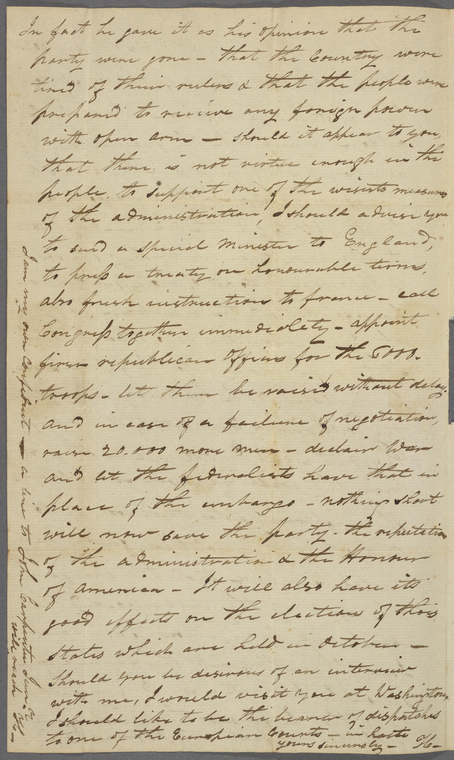 In fact he gave it as his opinion that the
party were gone - that the Country were
tired of their rulers & that the people were
prepared to receive any foreign power
with open arm - should it appear to you
that there is not virtue enough in the
people to support one of the wisests measures
of the administration, I should advise you
to send a special minister to England,
to press a treaty on honourable terms,
also fresh instructions to france - call
Congress together immediately - appoint
firm republican officers for the 6000
troops - let them be raised without delay,
and in case of a failure of negotiation,
raise 20.000 more men - declair War
and let the federalists have that in
place of the embargo - nothing short
will now save the party - the reputation
of the administration & the Honour
of America - It will also have its
good effects on the elections of those
states which are held in October -
Should you be desirous of an interview
with me, I would visit you at Washington
I should like to be the bearer of dispatches
to one of the European Courts - in haste
yours sincerely -
I am my own Confident - a line to John Carpenter
will reach